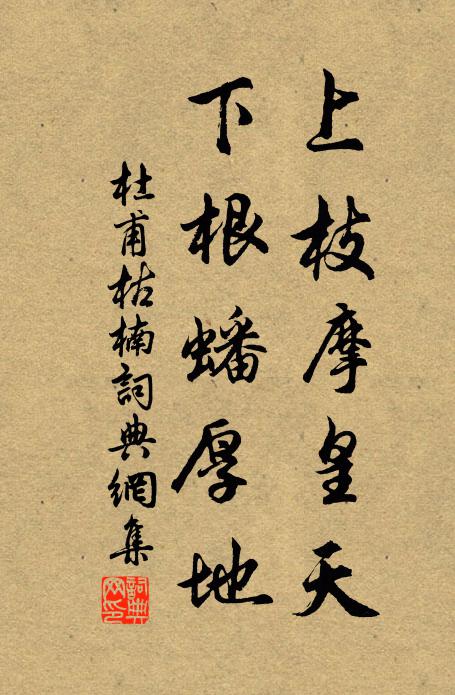 上枝摩皇天
下根蟠厚地
杜甫枯楠詞典網集
詞典網印